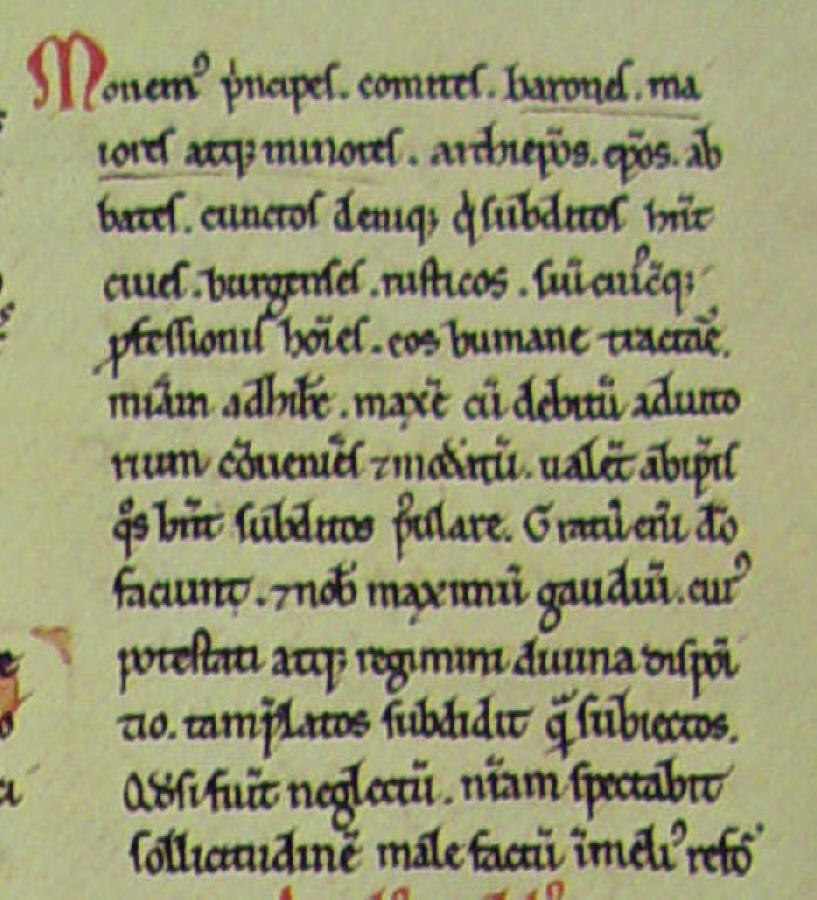 Monemꝰ pͥncipes. comites. barones. ma
iores atqꝫ minores. archiep̄os. ep̄os. ab
bates. cunctos deniqꝫ q̇ subditos hn̄t
ciues. burgenses. rusticos. sui cuic̄qꝫ
ꝓfessionis hōies. eos humane tractar̄e.
miām adhibe. maxīe cū debitū adiuto
rium cōueniēs ⁊ mod̾itū. ualēt ab ip̄is
qͦs hn̄t subditos pͦstulare. Gratū eni d̄o
faciunt. ⁊ nob̄ maximū gaudiū. cuiꝰ
potestati atqꝫ regimini diuina disposi
tio. tam p̄latos subdidit qͣ̄ subiectos.
Qd̾ si fuīt neglectū. nr̄am spectabit
sollicitudinē male factū ī meliꝰ refō